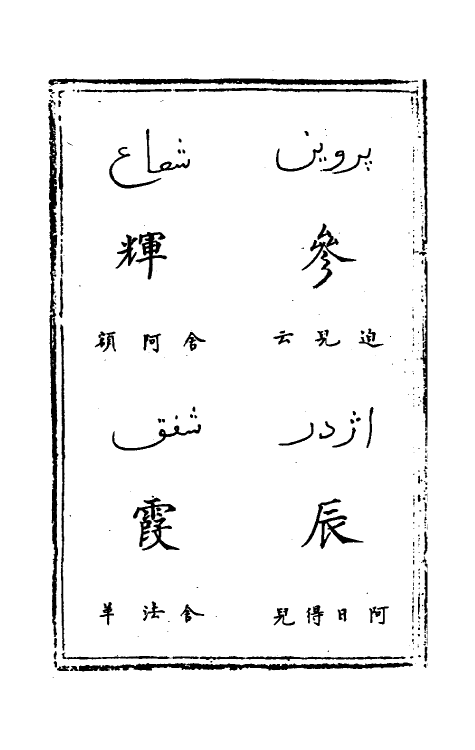 پروین
參
迫兒云
اژدر
辰
阿日得兒
شعاع
輝
舍阿額
شفق
霞
舍法革